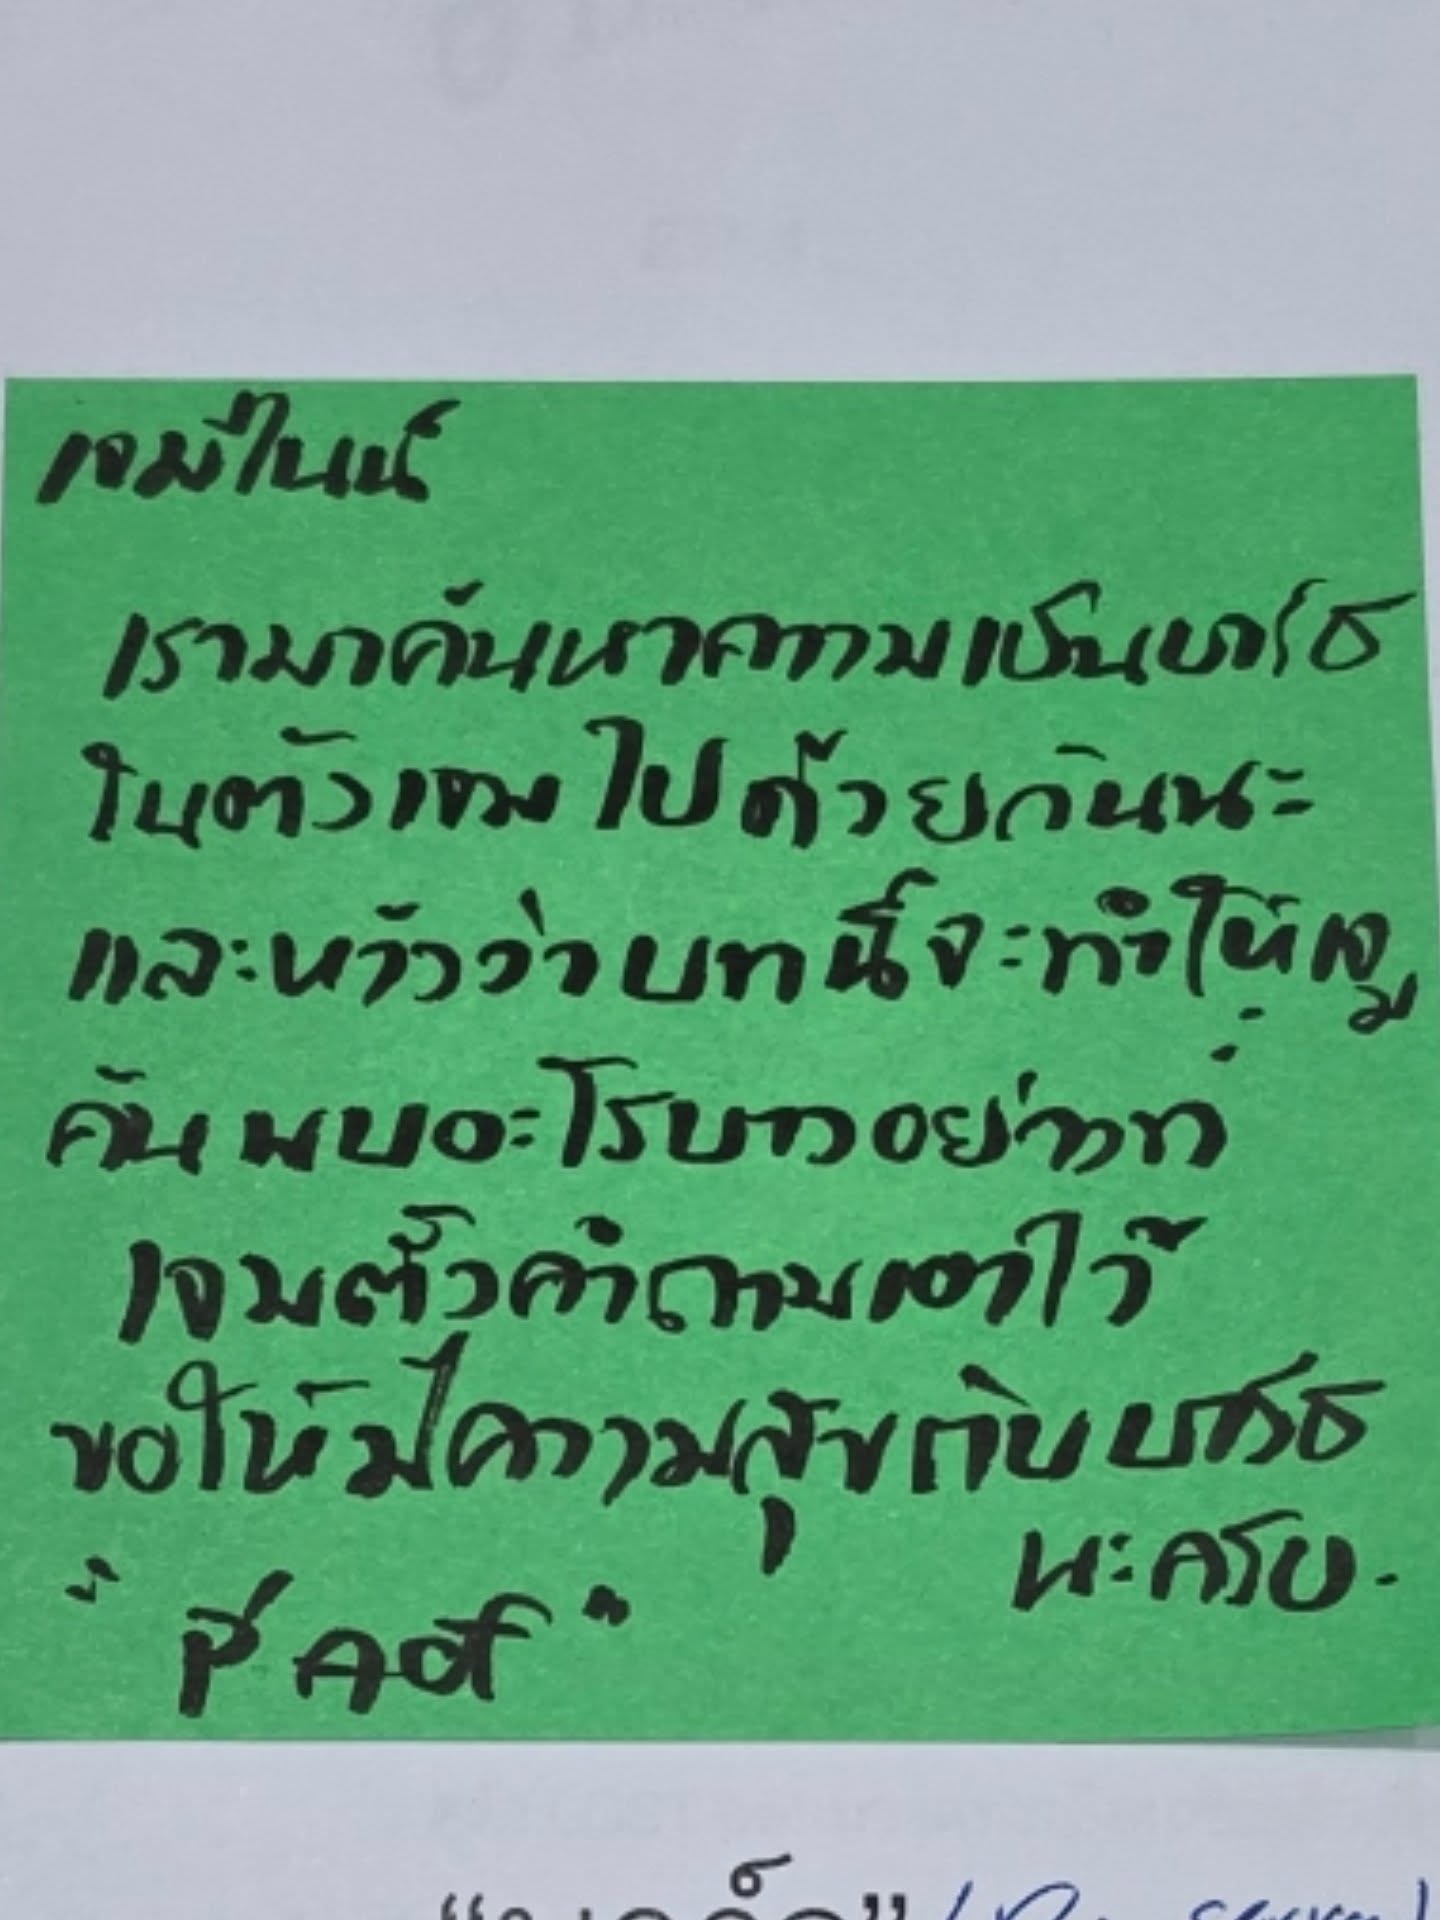 เจมีไนน์
เรามาค้นหาความเป็นบาร์ธ
ในตัวเจมไปด้วยกันนะ
และหวังว่าบทนี้จะทำให้เจม
ค้นพบอะไรบางอย่างที่
เจมตั้งคำถามเอาไว้
ขอให้มีความสุขกับบาร์ธ
นะครับ.